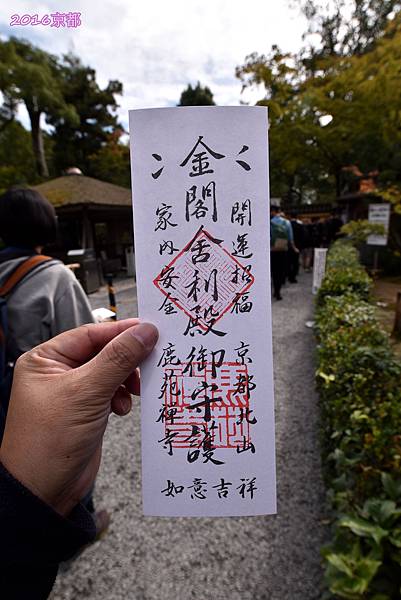 2016京都
金閣舎利殿御守護
開運招福 京都北山
家内安全 鹿苑禅寺
如意吉祥